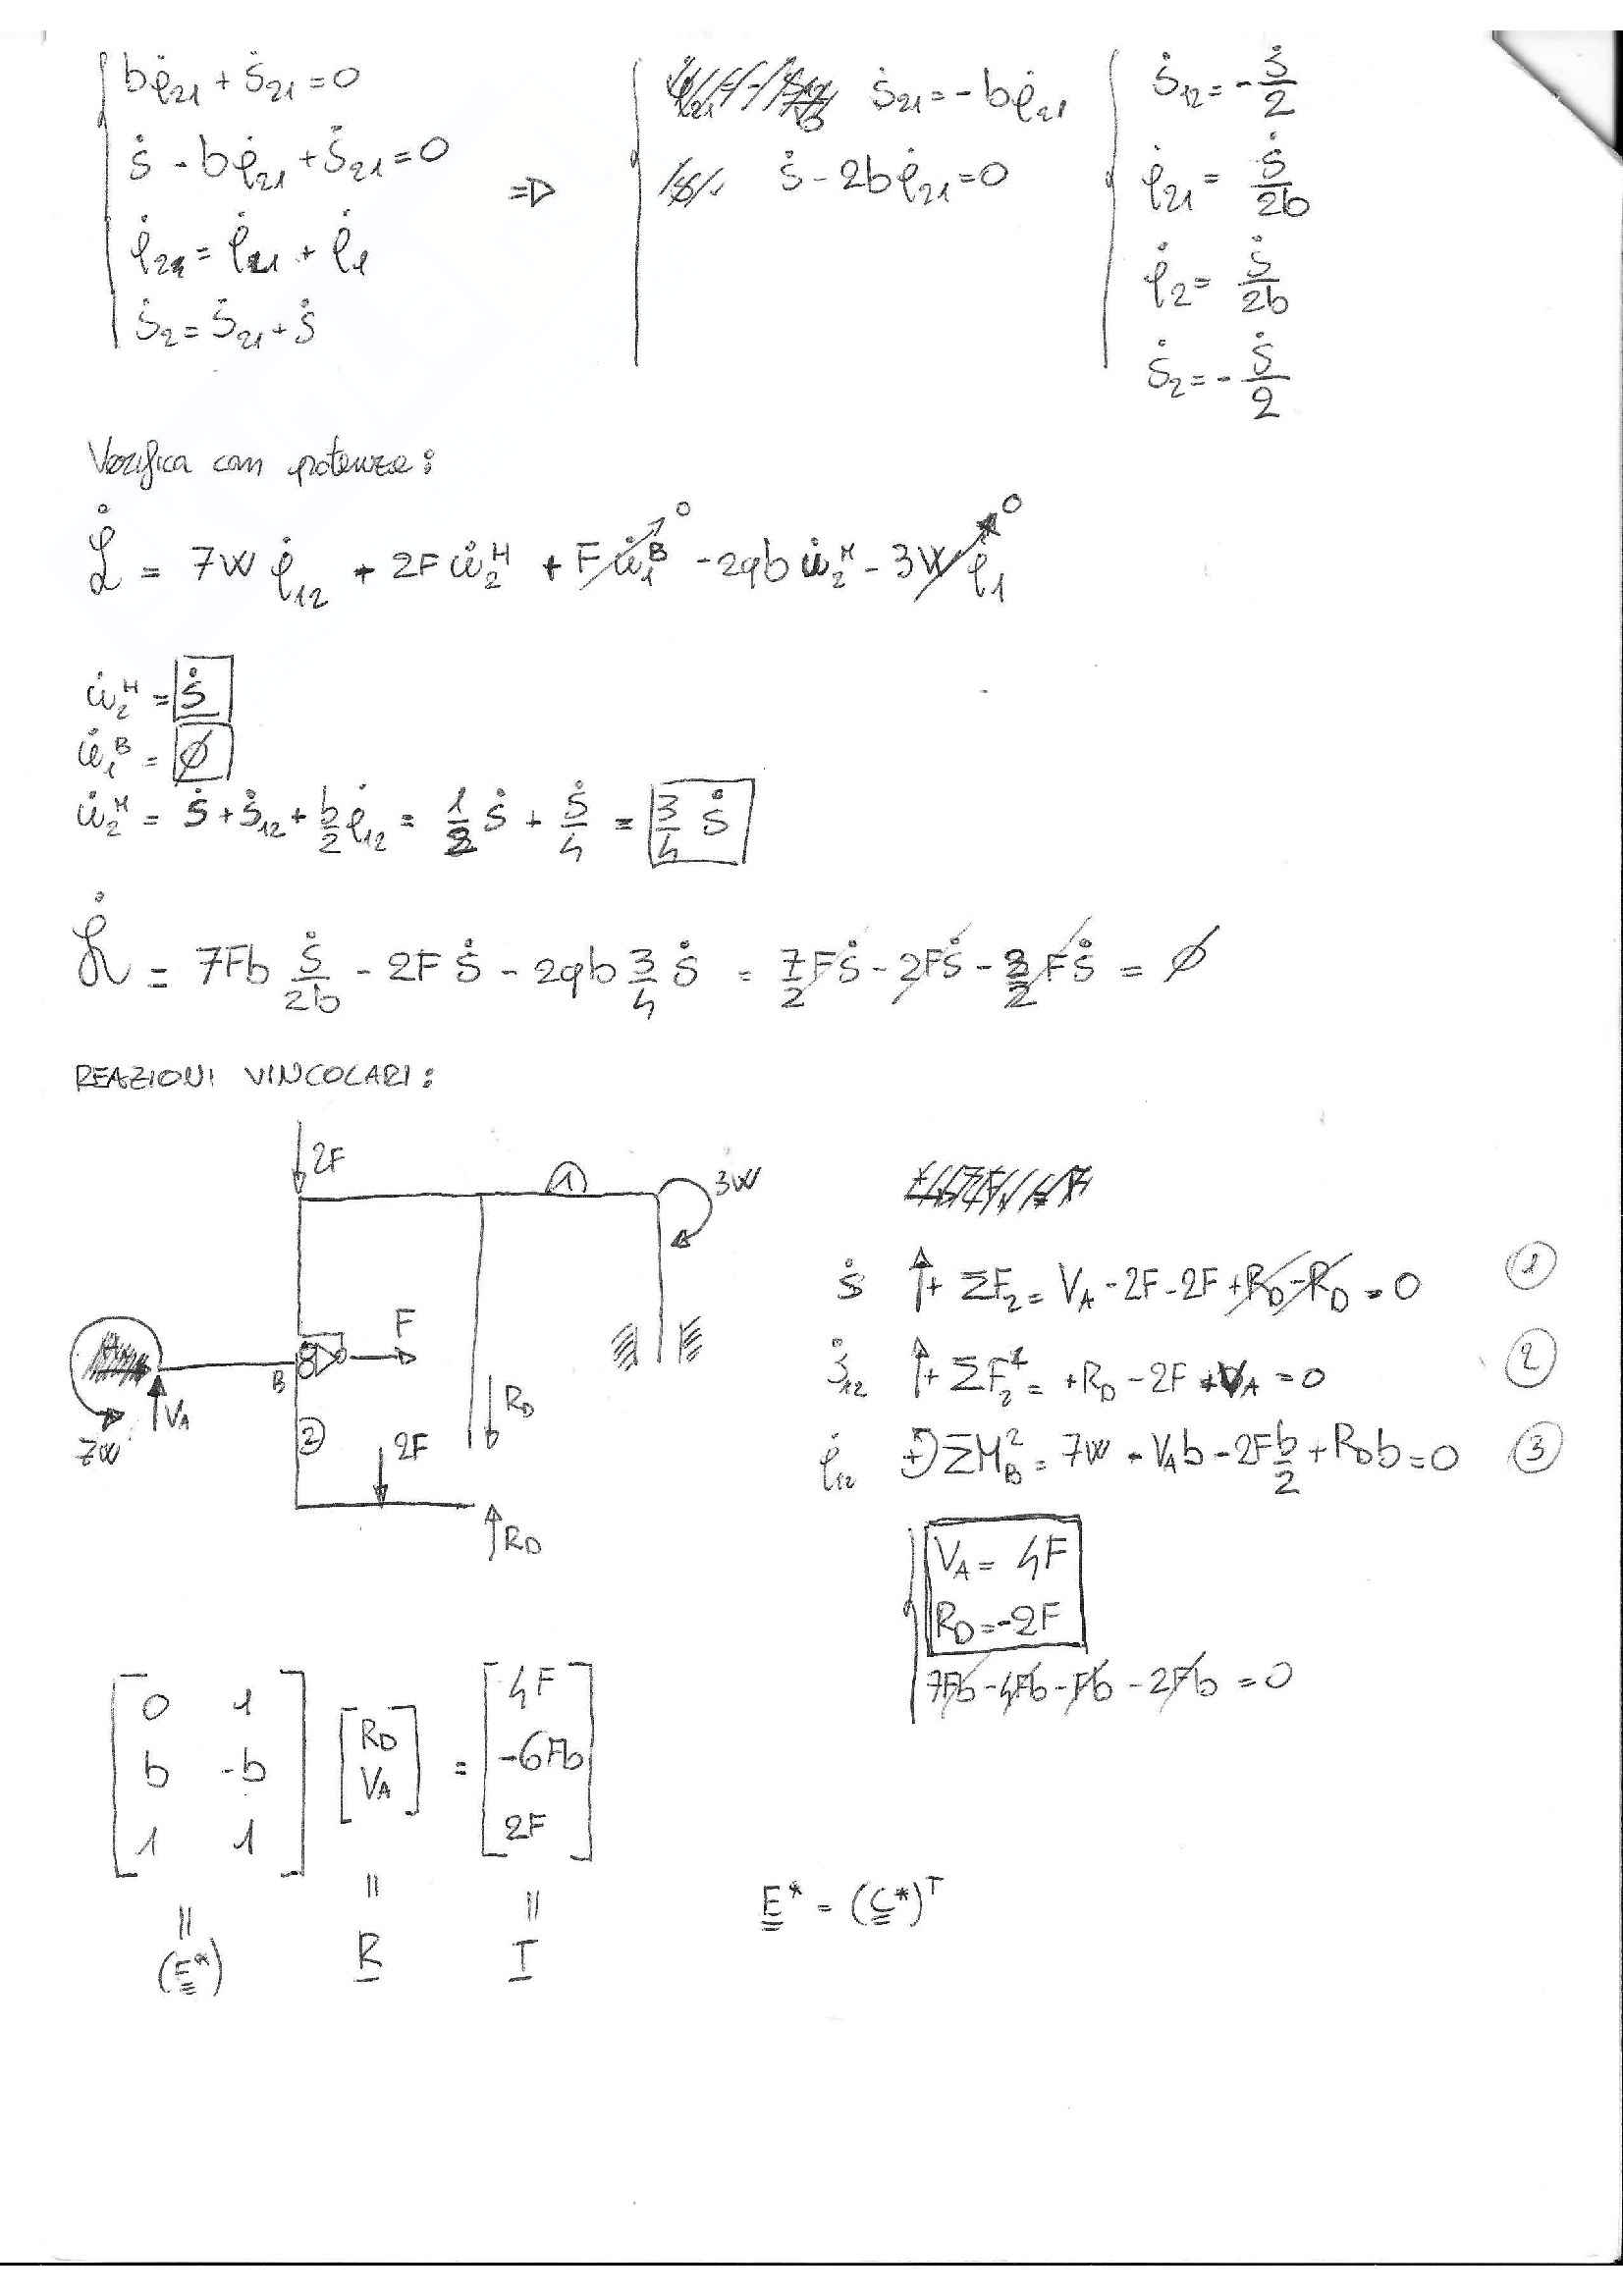 bφ̇₂₁ + ṡ₂₁ = 0
ṡ - bφ̇₂₁ + ṡ₂₁ = 0
φ̇₂ = φ̇₂₁ + φ̇₁
ṡ₂ = ṡ₂₁ + ṡ
=>
ṡ₂₁ = -bφ̇₂₁
ṡ - 2bφ̇₂₁ = 0
ṡ₁₂ = -ṡ/2
φ̇₂₁ = ṡ/2b
φ̇₂ = ṡ/2b
ṡ₂ = -ṡ/2
Verifica con potenze:
ℒ̇ = 7W φ̇₁₂ - 2F u̇₂ᴴ + F u̇₁ᴮ 0 - 2qb u̇₂ᴹ - 3W φ̇₁ 0
u̇₂ᴴ = ṡ
u̇₁ᴮ = ∅
u̇₂ᴹ = ṡ + ṡ₁₂ + b/2 φ̇₁₂ = 1/2 ṡ + ṡ/4 = 3/4 ṡ
ℒ̇ = 7Fb ṡ/2b - 2F ṡ - 2qb 3/4 ṡ = 7/2 Fṡ - 2Fṡ - 3/2 Fṡ = ∅
REAZIONI VINCOLARI:
2F
1
3W
F
B
V_A
7W
2
2F
R_D
R_D
ṡ ↑+ ΣF₂ = V_A - 2F - 2F + R_D - R_D = 0 ①
ṡ₁₂ ↑+ ΣF₂² = + R_D - 2F + V_A = 0 ②
φ̇₁₂ +) ΣM_B² = 7W - V_A b - 2F b/2 + R_D b = 0 ③
V_A = 4F
R_D = -2F
7Fb - 4Fb - Fb - 2Fb = 0
[0 1] [R_D] = [4F]
[b -b] [V_A] [-6Fb]
[1 1] [2F]
= = =
(E*) R T
E* = (C*)ᵀ